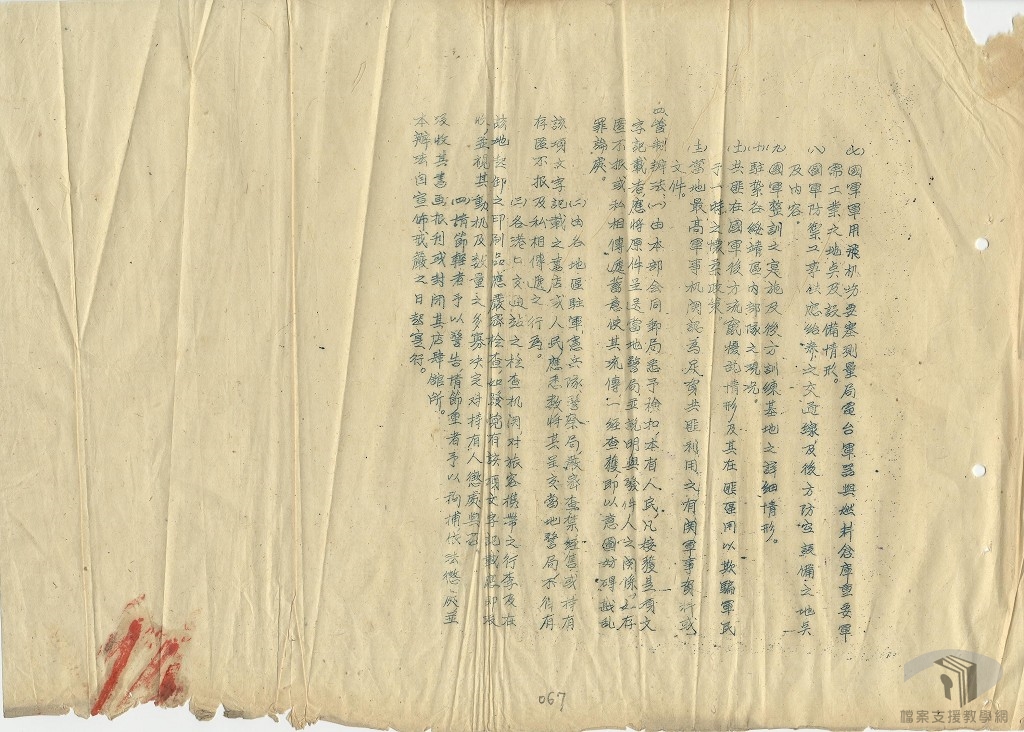 (七)國軍軍用飛机坊要塞測量局電台軍器與燃料倉庫重要軍
需工業之地奌及設備情形。
(八)國軍防禦工事供应給养之交通線及後方防空設備之地奌
及内容。
(九)國軍整訓之实施及後方訓練基地之詳細情形。
(十)駐紮各綏靖區内部隊之現况。
(土)共匪在國軍後方流竄擾乱情形及其在匪區用以欺騙軍民
于一時之懷柔政策
(圭)當地最高軍事机関認為足資共匪利用之有関軍事資料或
文件。
四、管制辦法(一)由本部会同郵局悉予檢扣本省人民凡接獲是項文
字記載者應將原件呈送當地警局並説明與發件人之関係如存
匿不报或私相傳遞蓄意使其流傳一經查獲即以意圖妨碍戡乱
罪論處。
(二)由各地區駐軍憲兵隊警察局嚴密查禁經售或持有
該項文字記載之書店或人民應悉数將其呈交當地警局不得有
存匿不报及私相傳遞之行為。
(三)各港口交通站之检查机関对旅客携帶之行李及在
該地起卸之印刷品應嚴密检查如發現有該項文字記載悉即没
收並視其動机及数量之多寡决定对持有人懲處與否
(四)情節輕者予以警告情節重者予以拘捕依法懲处並
没收其書画报刊或封閉其店肆館所。
本辦法自宣佈戒嚴之日起实行。
067
檔案支援教學網